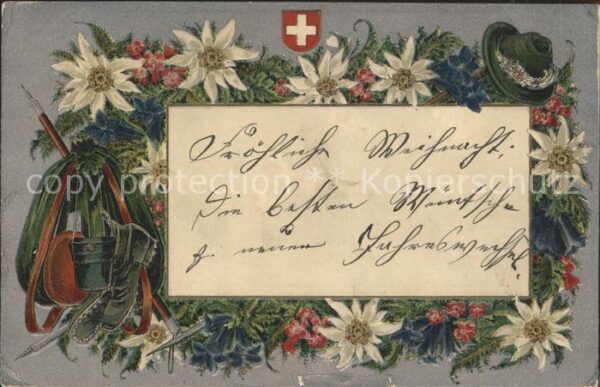 Fröhliche Weihnacht,
die besten Wünsche
z neuen Jahreswechsel.
copy protection * Kopierschutz